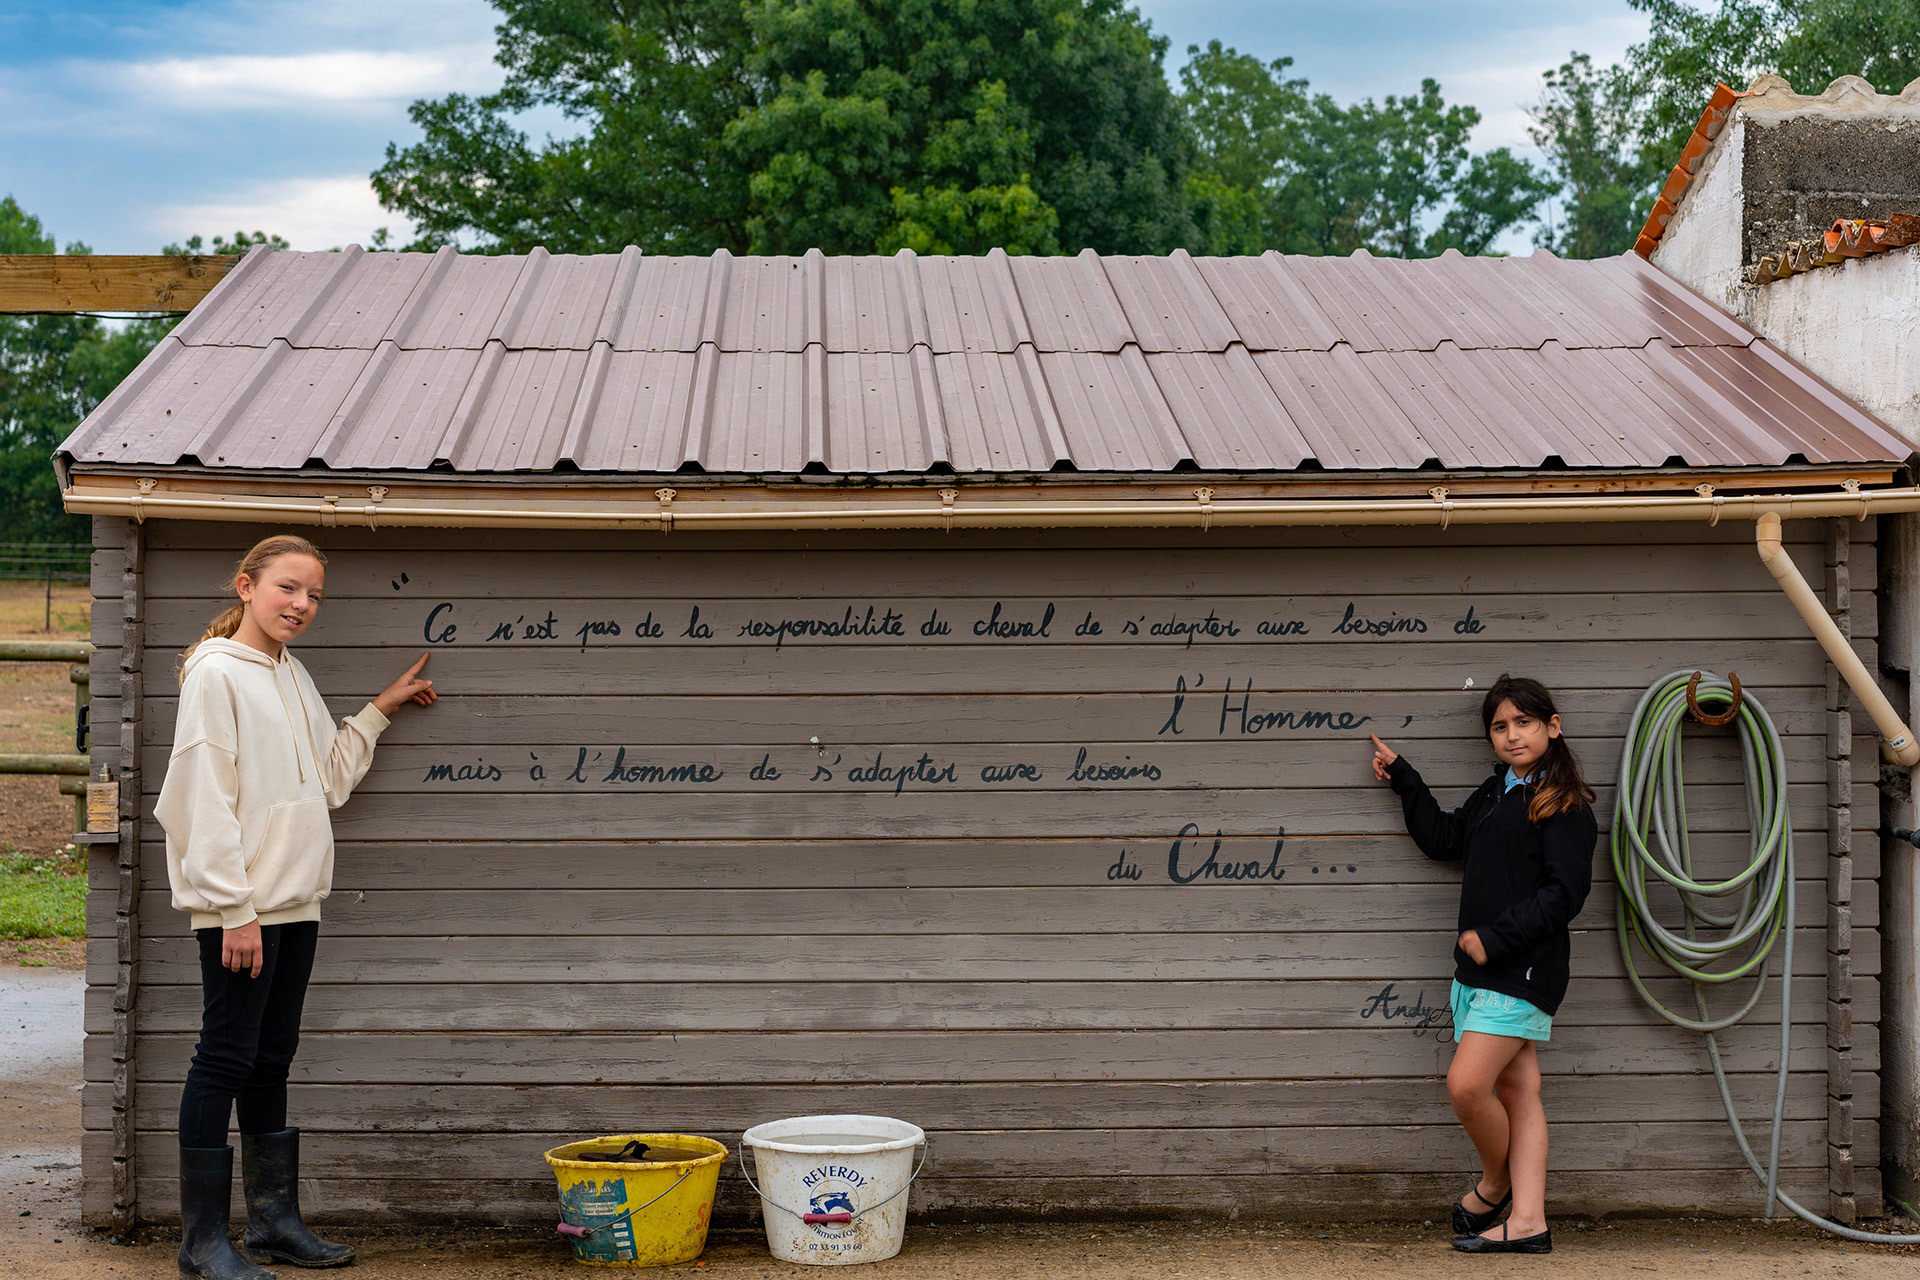 " Ce n'est pas de la responsabilité du cheval de s'adapter aux besoins de
l'Homme,
mais à l'homme de s'adapter aux besoins
du Cheval ...
Andy
GAP
REVERDY
NUTRITION ÉQUINE
02 33 91 35 60